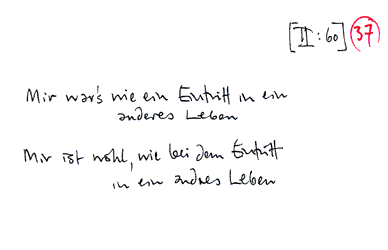 [II:60] 37
Mir war's wie ein Eintritt in ein
anderes Leben
Mir ist wohl, wie bei dem Eintritt
in ein andres Leben